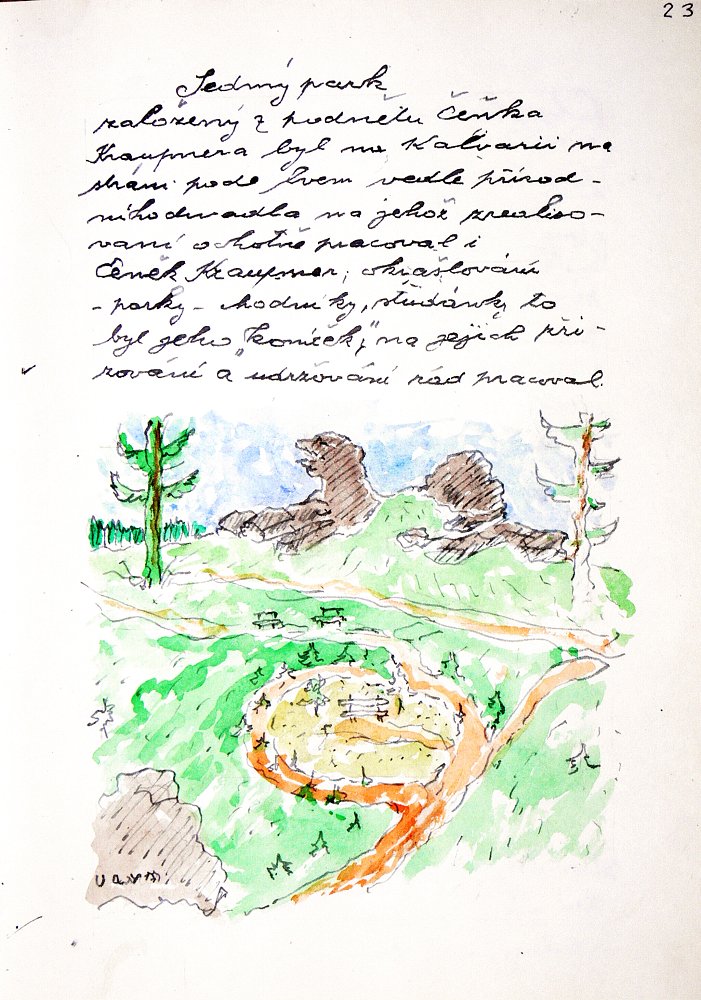 23
Sedmý park
založený z podnětu Čeňka
Kraupnera byl na Kalvarii na
stráni pode lvem vedle přírod-
ního divadla na jehož zrealiso-
vaní ochotně pracoval i
Čeněk Kraupner, okrašlování
- parky - chodníky, studánky to
byl jeho "koníček", na jejich při-
zování a udržování rád pracoval.